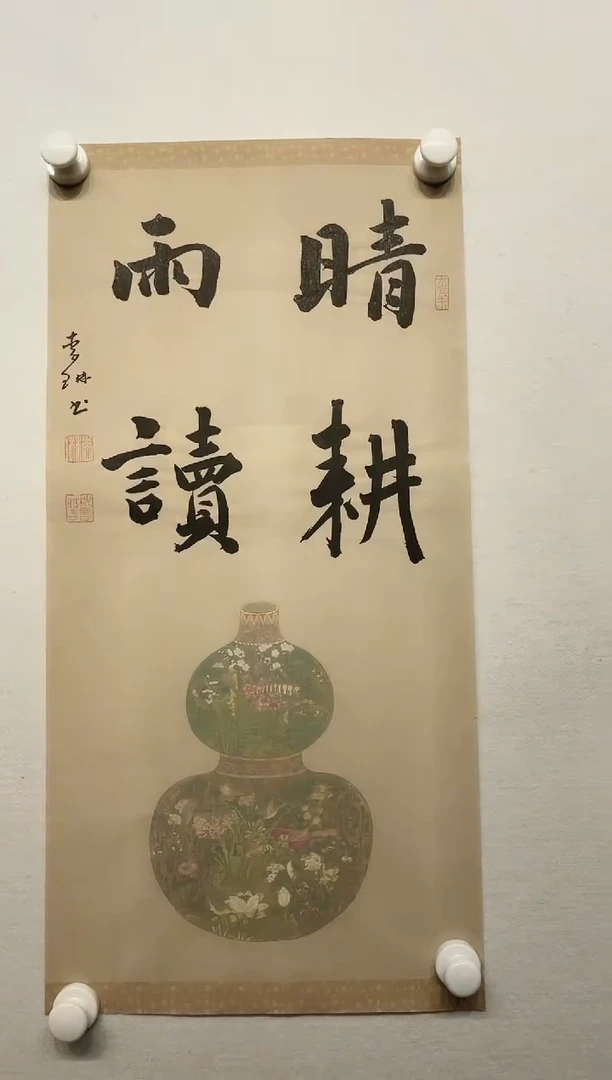 晴耕
雨讀
琳书